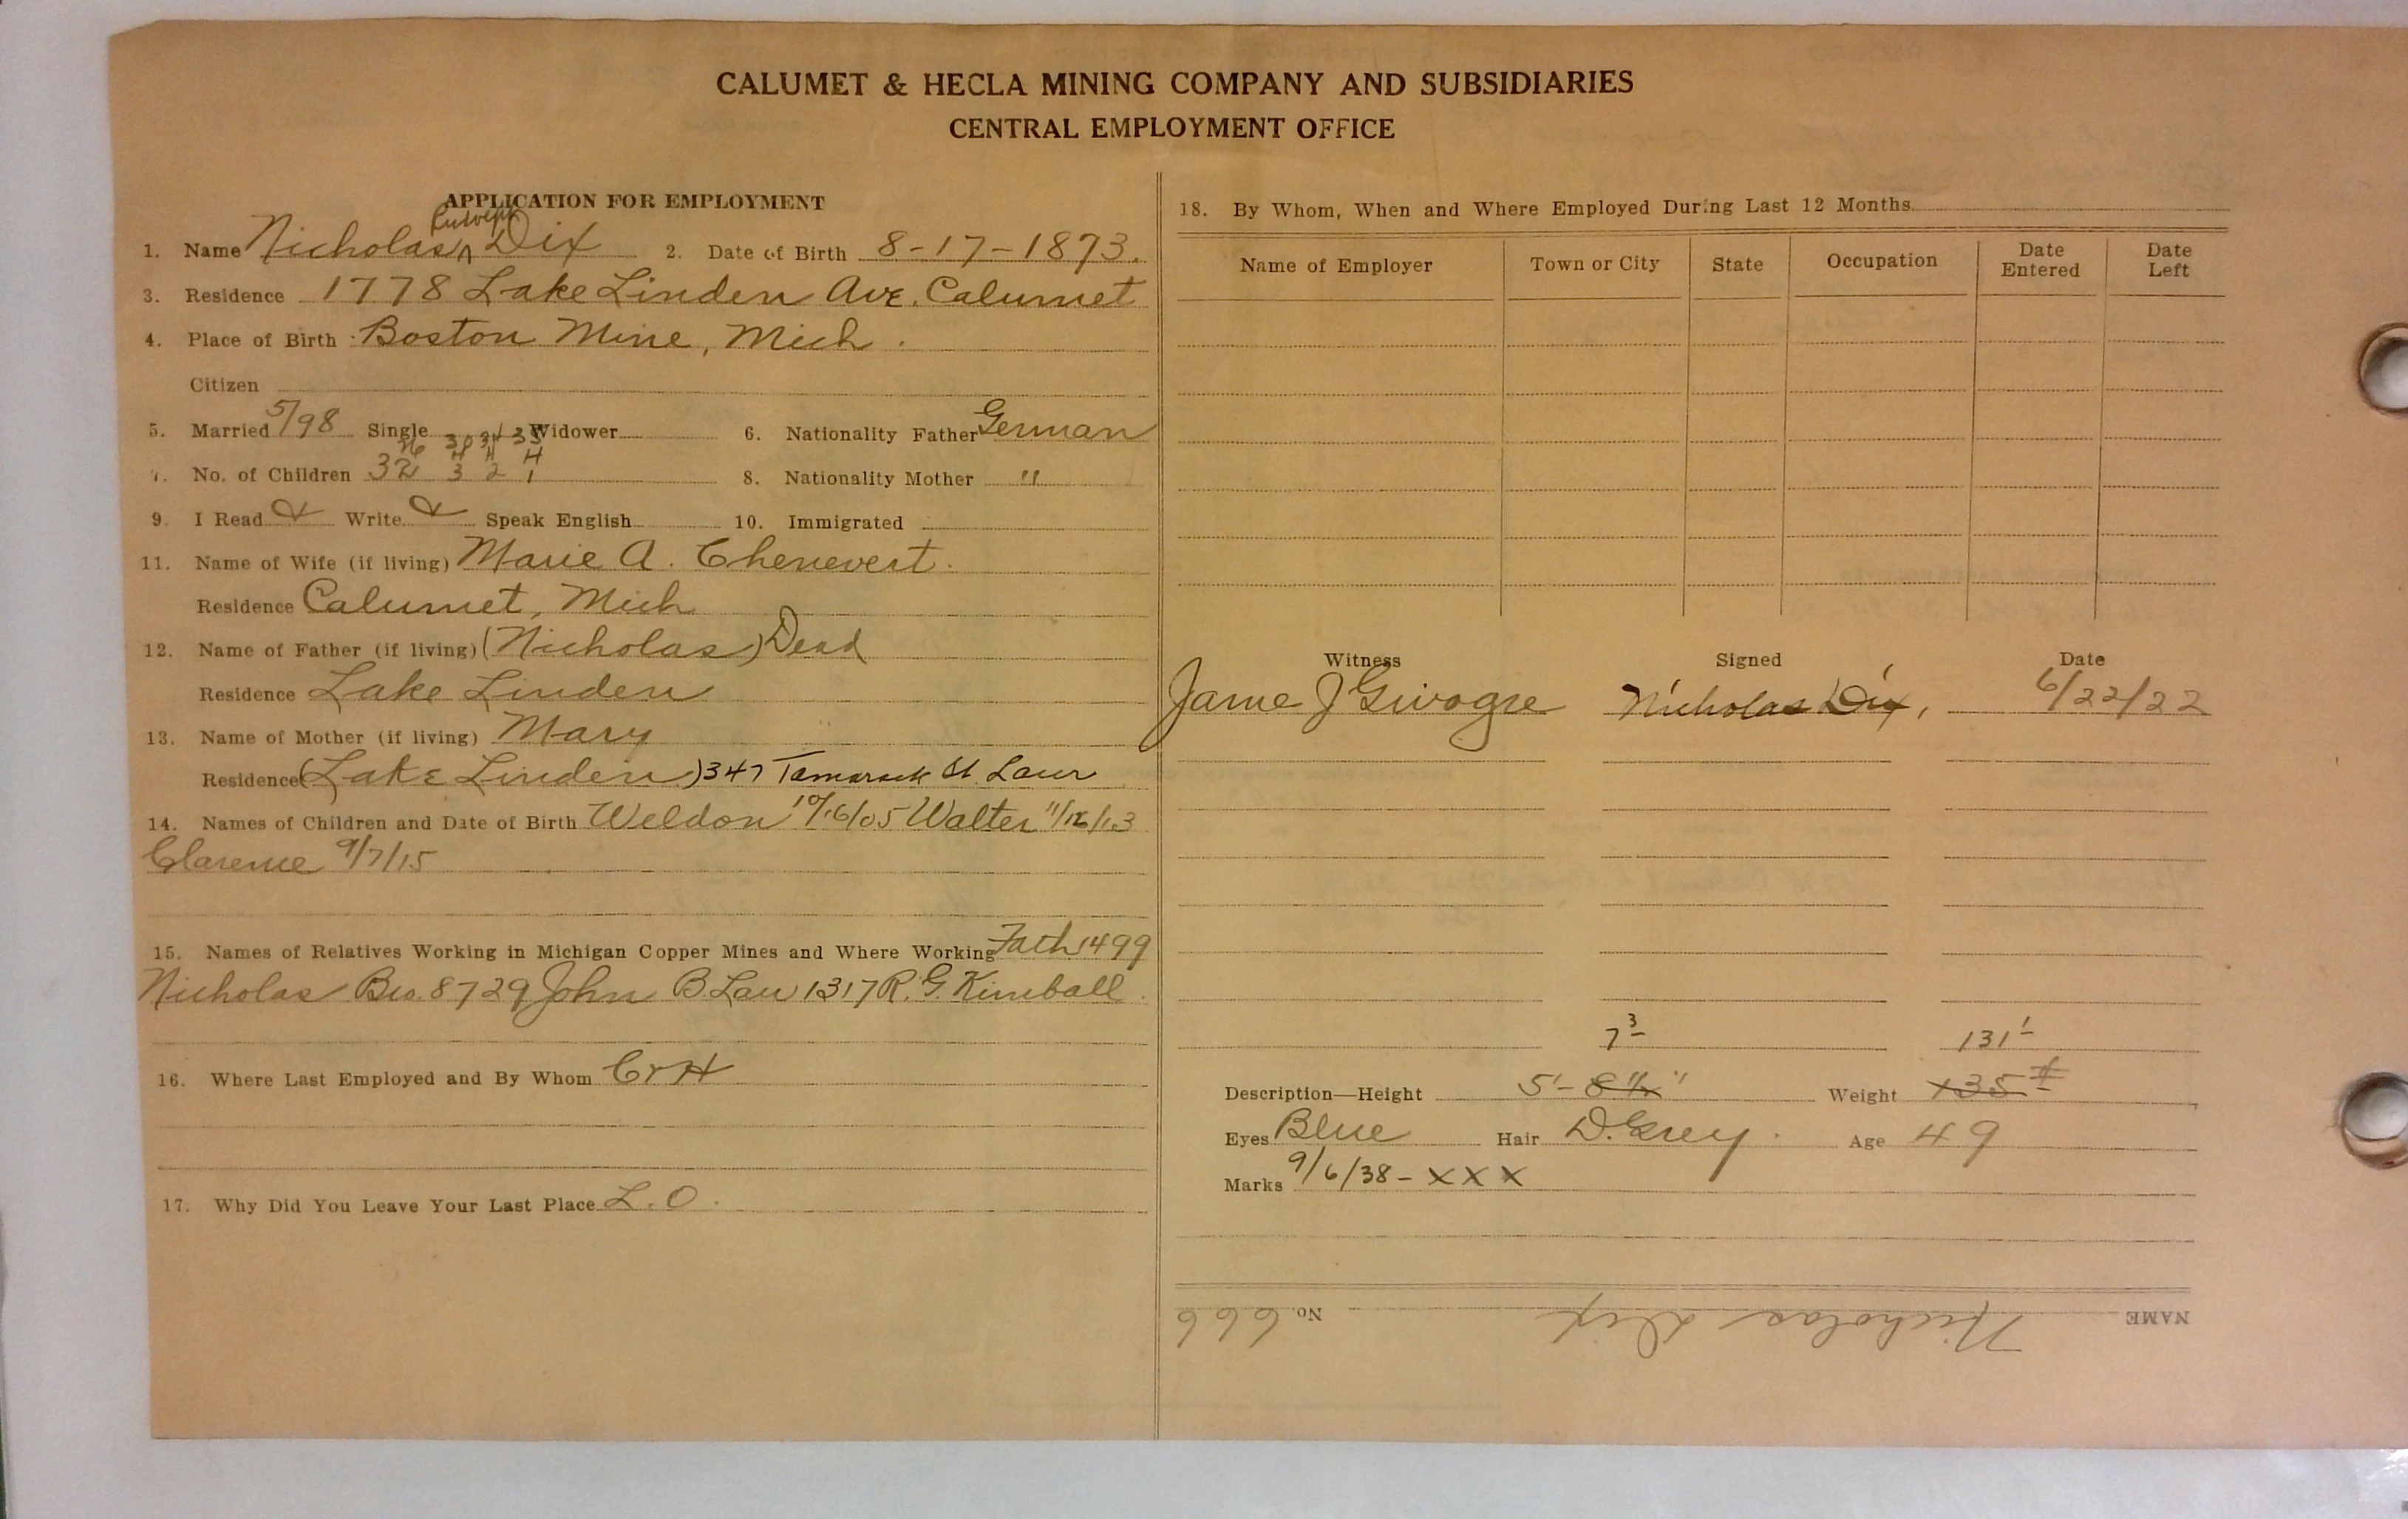 CALUMET & HECLA MINING COMPANY AND SUBSIDIARIES
CENTRAL EMPLOYMENT OFFICE
APPLICATION FOR EMPLOYMENT
1. Name Nicholas Dix 2. Date of Birth 8-17-1873.
3. Residence 1778 Lake Linden Ave. Calumet
4. Place of Birth Boston Mine, Mich.
Citizen
5. Married 5/98 Single Widower 6. Nationality Father German
36 34 35
H H H
7. No. of Children 32 3 2 1 8. Nationality Mother "
9. I Read Write Speak English 10. Immigrated
11. Name of Wife (if living) Marie A. Chenevert.
Residence Calumet, Mich
12. Name of Father (if living) (Nicholas) Dead
Residence Lake Linden
13. Name of Mother (if living) Mary
Residence (Lake Linden) 347 Tamarack St. Laur
14. Names of Children and Date of Birth Weldon 10/16/05 Walter 11/12/13
Clarence 9/7/15
15. Names of Relatives Working in Michigan Copper Mines and Where Working Fath 1499
Nicholas Bro. 8729 John B Law 1317 R. G. Kimball.
16. Where Last Employed and By Whom C & H
17. Why Did You Leave Your Last Place L. O.
18. By Whom, When and Where Employed During Last 12 Months
Name of Employer Town or City State Occupation Date Entered Date Left
Witness Signed Date
J Nicholas Dix, 6/22/22
7 3 131
Description—Height 5'-8 1/2" Weight 135#
Eyes Blue Hair D. Grey. Age 49
Marks 9/6/38 - X X X
NAME Nicholas Dix No. 666